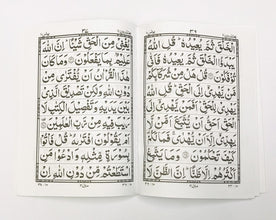 الْخَلْقَ ثُمَّ يُعِيْدُهٗ قُلِ اللّٰهُ
يَبْدَؤُا الْخَلْقَ ثُمَّ يُعِيْدُهٗ فَاَنّٰى
تُؤْفَكُوْنَ قُلْ هَلْ مِنْ شُرَكَآئِكُمْ
مَّنْ يَّهْدِيْٓ اِلَى الْحَقِّ قُلِ اللّٰهُ
يَهْدِيْ لِلْحَقِّ اَفَمَنْ يَّهْدِيْٓ اِلَى
الْحَقِّ اَحَقُّ اَنْ يُّتَّبَعَ اَمَّنْ لَّا
يَهِدِّيْٓ اِلَّآ اَنْ يُّهْدٰى فَمَا لَكُمْ
كَيْفَ تَحْكُمُوْنَ وَمَا يَتَّبِعُ
اَكْثَرُهُمْ اِلَّا ظَنًّا اِنَّ الظَّنَّ لَا
يُغْنِيْ مِنَ الْحَقِّ شَيْـًٔا اِنَّ اللّٰهَ
عَلِيْمٌۢ بِمَا يَفْعَلُوْنَ وَمَا كَانَ
هٰذَا الْقُرْاٰنُ اَنْ يُّفْتَرٰى مِنْ
دُوْنِ اللّٰهِ وَلٰكِنْ تَصْدِيْقَ الَّذِيْ
بَيْنَ يَدَيْهِ وَتَفْصِيْلَ الْكِتٰبِ لَا
رَيْبَ فِيْهِ مِنْ رَّبِّ الْعٰلَمِيْنَ
اَمْ يَقُوْلُوْنَ افْتَرٰىهُ قُلْ فَاْتُوْا
بِسُوْرَةٍ مِّثْلِهٖ وَادْعُوْا مَنِ
اسْتَطَعْتُمْ مِّنْ دُوْنِ اللّٰهِ اِنْ